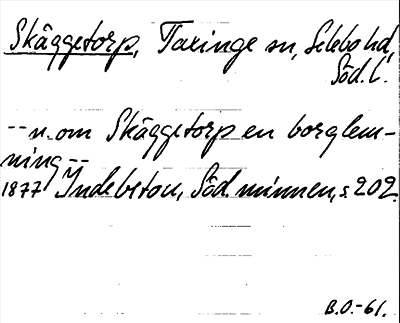 Skäggetorp, Taxinge sn, Selebo hd,
Söd. l.
-- n. om Skäggetorp en borglem-
ning --
1877 Indebetou, Söd. minnen, s. 202.
B.O.-61.